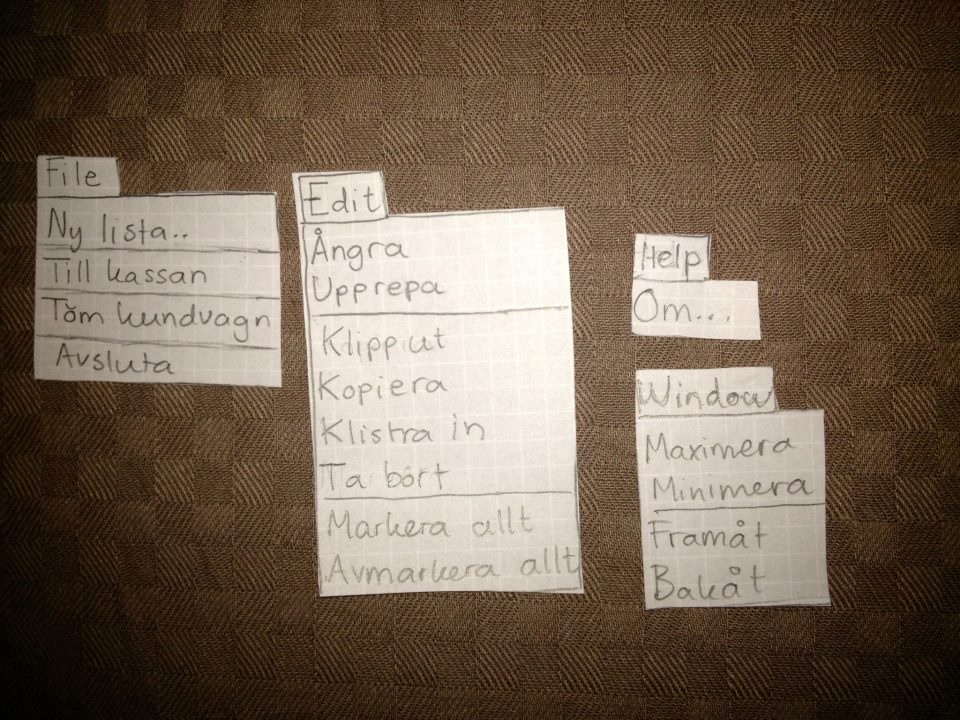 File
Ny lista..
Till kassan
Töm kundvagn
Avsluta
Edit
Ångra
Upprepa
Klipp ut
Kopiera
Klistra in
Ta bort
Markera allt
Avmarkera allt
Help
Om...
Window
Maximera
Minimera
Framåt
Bakåt